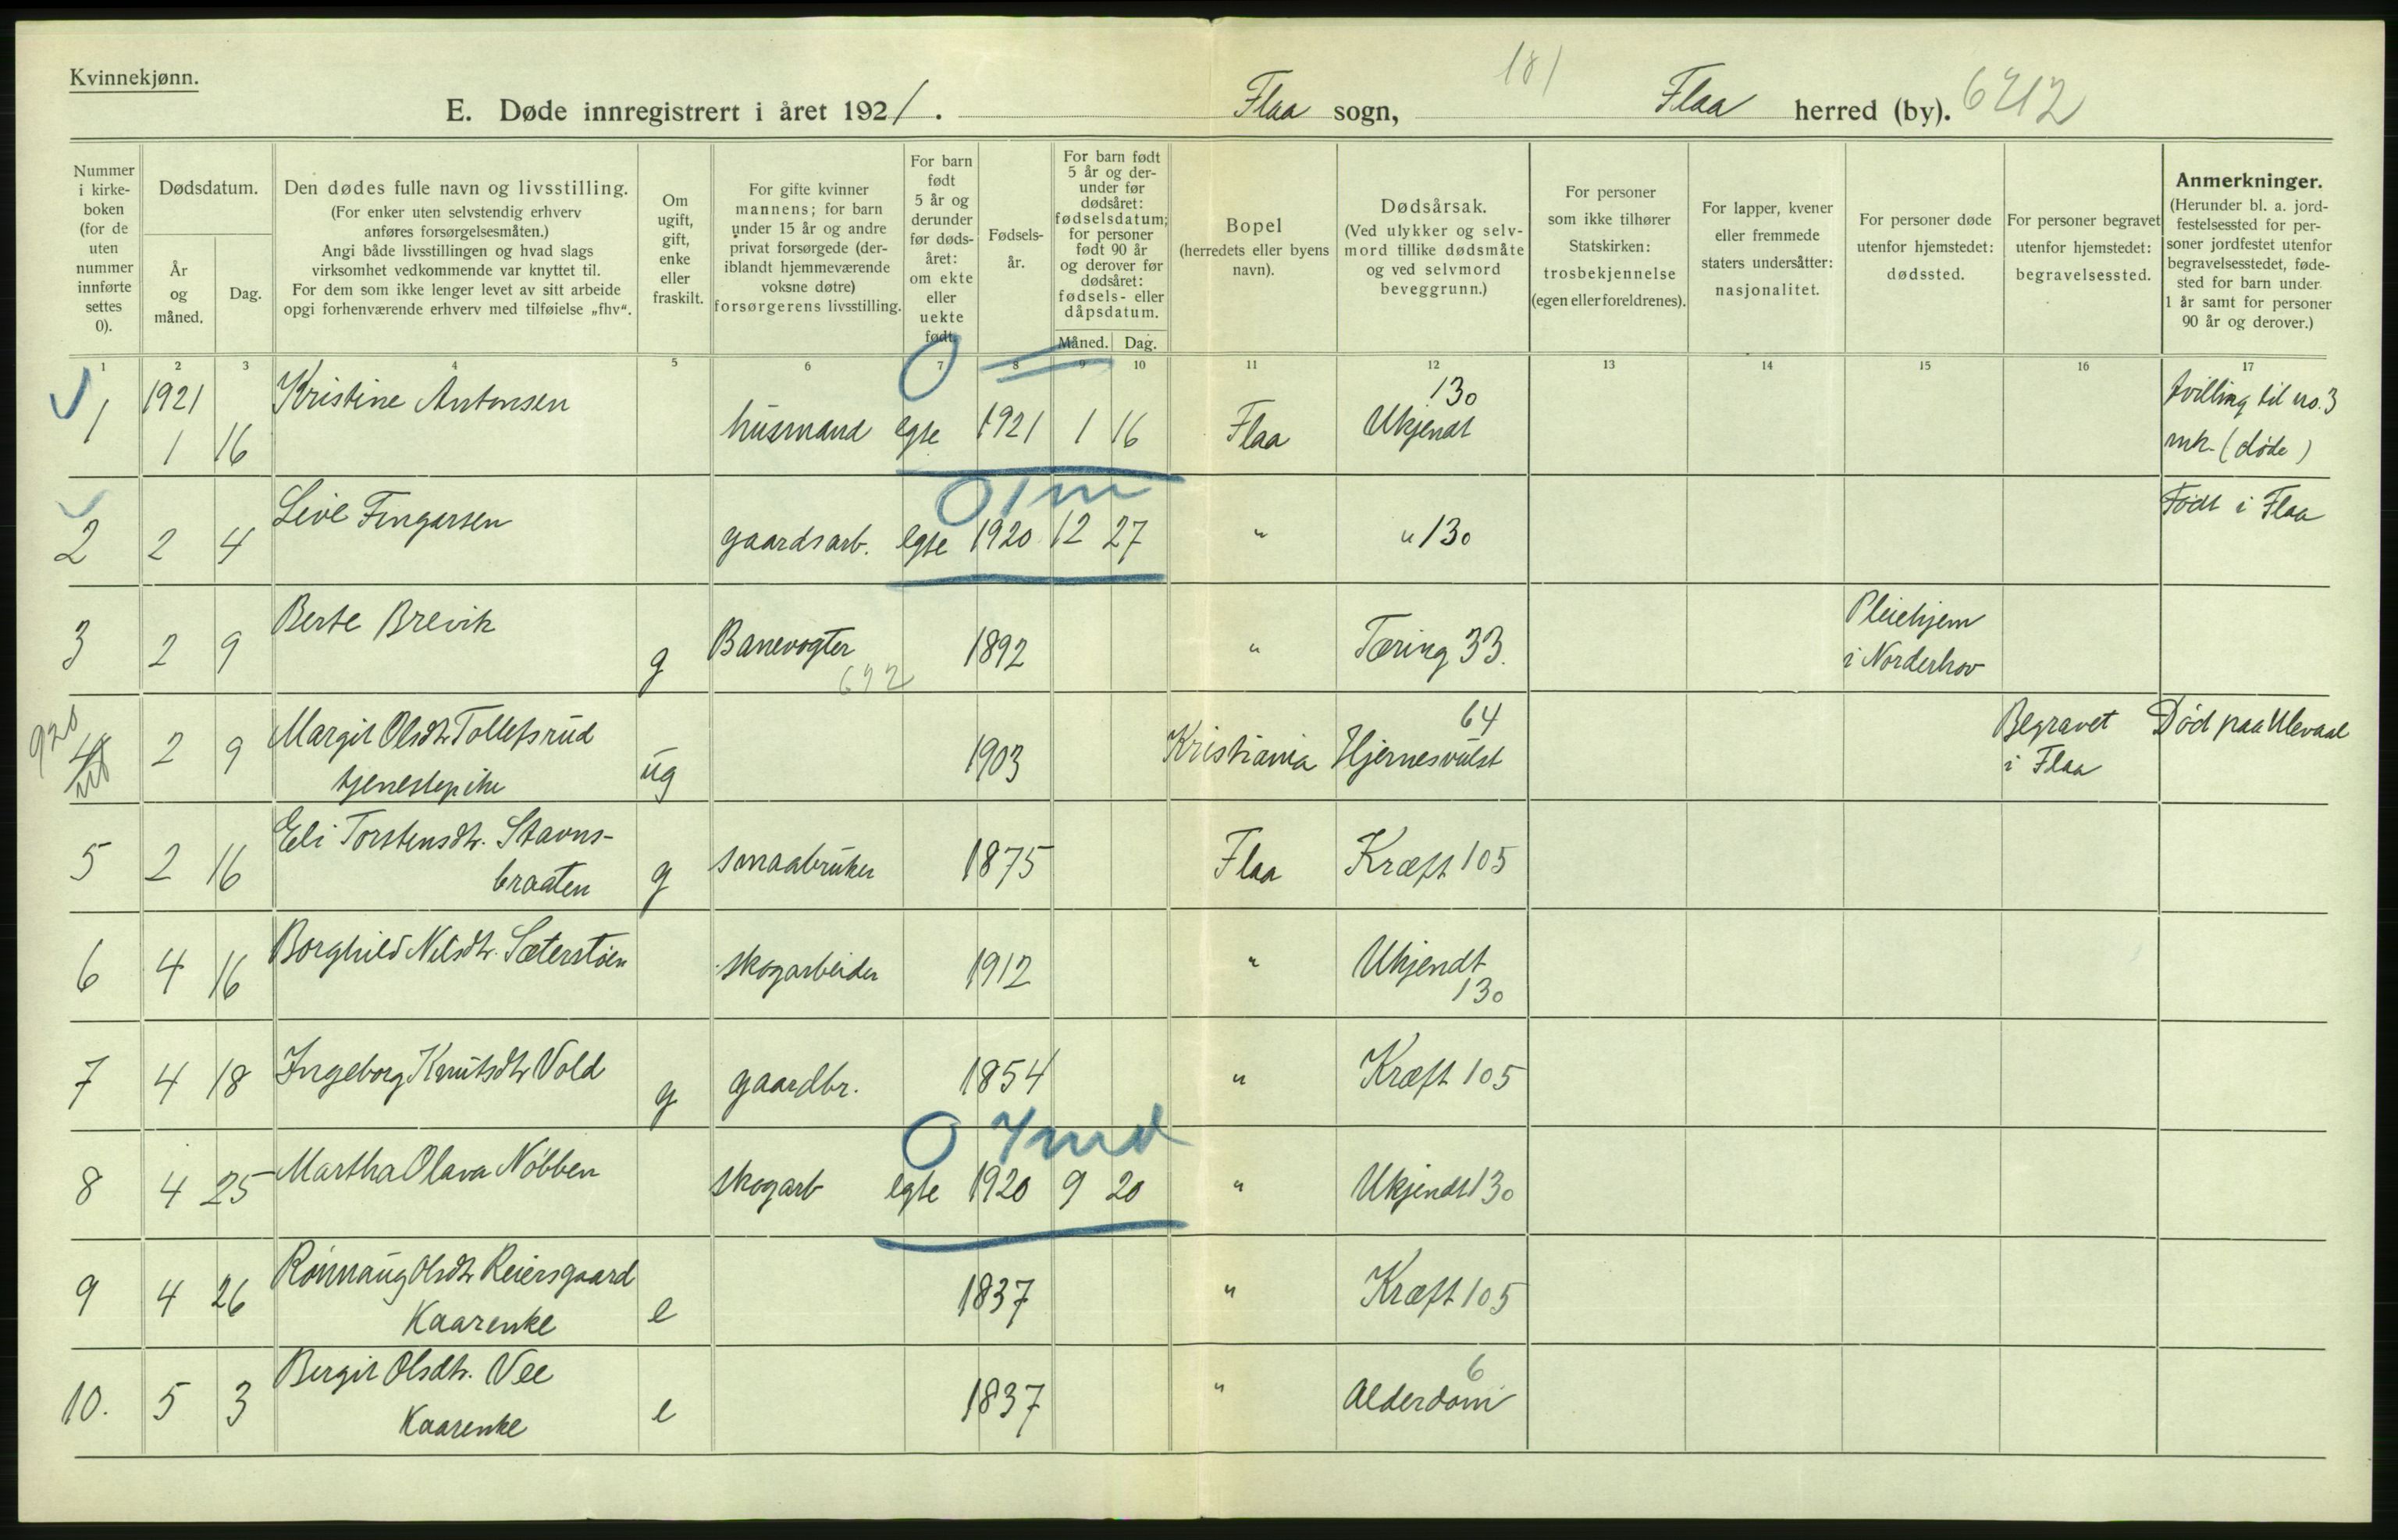 Kvinnekjønn.
181
E. Døde innregistrert i året 1921. Flaa sogn, Flaa herred (by). 6212
Nummer i kirke-boken (for de uten nummer innførte settes 0).
Dødsdatum.
År og måned.
Dag.
Den dødes fulle navn og livsstilling.
(For enker uten selvstendig erhverv
anføres forsørgelsesmåten.)
Angi både livsstillingen og hvad slags
virksomhet vedkommende var knyttet til.
For dem som ikke lenger levet av sitt arbeide
opgi forhenværende erhverv med tilføielse „fhv“.
Om ugift, gift, enke eller fraskilt.
For gifte kvinner
mannens; for barn
under 15 år og andre
privat forsørgede (der-
iblandt hjemmeværende
voksne døtre)
forsørgerens livsstilling.
For barn født 5 år og derunder før døds-året: om ekte eller uekte født.
Fødsels-år.
For barn født
5 år og der-
under før
dødsåret:
fødselsdatum;
for personer
født 90 år
og derover før
dødsåret:
fødsels- eller
dåpsdatum.
Måned. Dag.
Bopel
(herredets eller byens
navn).
Dødsårsak.
(Ved ulykker og selv-
mord tillike dødsmåte
og ved selvmord
beveggrunn.)
For personer
som ikke tilhører
Statskirken:
trosbekjennelse
(egen eller foreldrenes).
For lapper, kvener
eller fremmede
staters undersåtter:
nasjonalitet.
For personer døde
utenfor hjemstedet:
dødssted.
For personer begravet
utenfor hjemstedet:
begravelsessted.
Anmerkninger.
(Herunder bl. a. jord-
festelsessted for per-
soner jordfestet utenfor
begravelsesstedet, føde-
sted for barn under
1 år samt for personer
90 år og derover.)
1 2 3 4 5 6 7 8 9 10 11 12 13 14 15 16 17
0
1921 Kristine Antonsen 130 tvilling til no. 3
1 1 16 husmand egte 1921 1 16 Flaa Ukjendt mk. (døde)
0 1 m
Live Fingarsen Født i Flaa
2 2 4 gaardsarb. egte 1920 12 27 " " 130
Berte Brevik Pleiehjem
3 2 9 g Banevogter 1892 " Tæring 33. i Norderhov
692
920
Margit Olsdtr Tollefsrud 64 Begravet Død paa Ulevaal
4 2 9 tjenestepike ug 1903 Kristiania Hjernesvulst i Flaa
Eli Torstensdtr. Stavns-
5 2 16 braaten g smaabruker 1875 Flaa Kræft 105
Borghild Nilsdtr. Sæterstøen
6 4 16 skogarbeider 1912 " Ukjendt
130
7 4 18 Ingeborg Knutsdtr Vold g gaardbr. 1854 " Kræft 105
0 7 md
Martha Olava Nøbben
8 4 25 skogarb egte 1920 9 20 " Ukjendt 130
Rønnaug Olsdtr Reiersgaard
9 4 26 Kaarenke e 1837 " Kræft 105
Bergit Olsdtr. Vee 6
10. 5 3 Kaarenke e 1837 " Alderdom